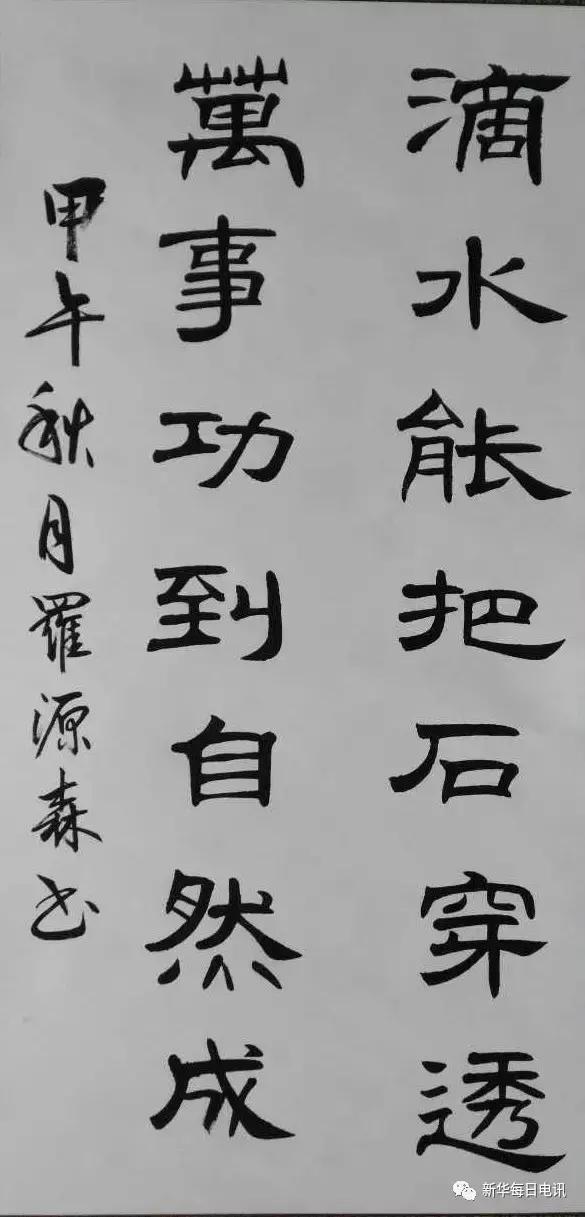 滴水能把石穿透
萬事功到自然成
甲午秋月羅源森书
新华每日电讯